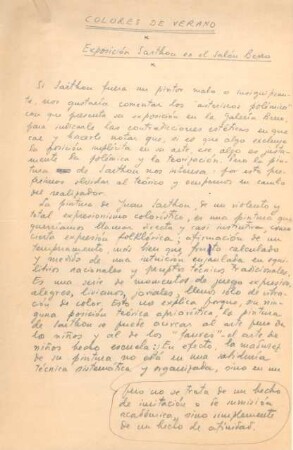 COLORES DE VERANO
Exposición Sarthou en el Salón
Si Sarthou fuera un pintor malo o insignificante,
nos gustaría comentar los "
con que presenta su exposición en la Galería
para indicarle las contradicciones estéticas en que
cae y hacerle notar que, si es que algo excluye
la posición implícita en su arte es algo
de polémica y la teorización. Pero la pintura
de Sarthou nos interesa; por esta
preferimos olvidar al teórico y ocuparnos en cambio
del realizador.
La pintura de Juan Sarthou, de un violento y
total expresionismo colorístico, es una pintura que
querríamos llamar directa y casi instintiva, como
cierta expresión folklórica; afirmación de un
temperamento, más bien que calculado
y medido de una intuición en
racionales y técnicos tradicionales.
Es una serie de momentos de juego expresivo,
alegres, livianos, joviales,
de color. Esto nos explica porque, sin
ninguna posición teórica apriorística, la pintura
de Sarthou se puede acercar al arte puro de
los niños y al de los el arte de
niños hecho escuela. En efecto la madurez
de su pintura no está en una sabiduría
técnica sistemática y organizada, sino en un
Pero no se trata de un hecho
de imitación o de sumisión
académica, sino simplemente
de un hecho de afinidad.